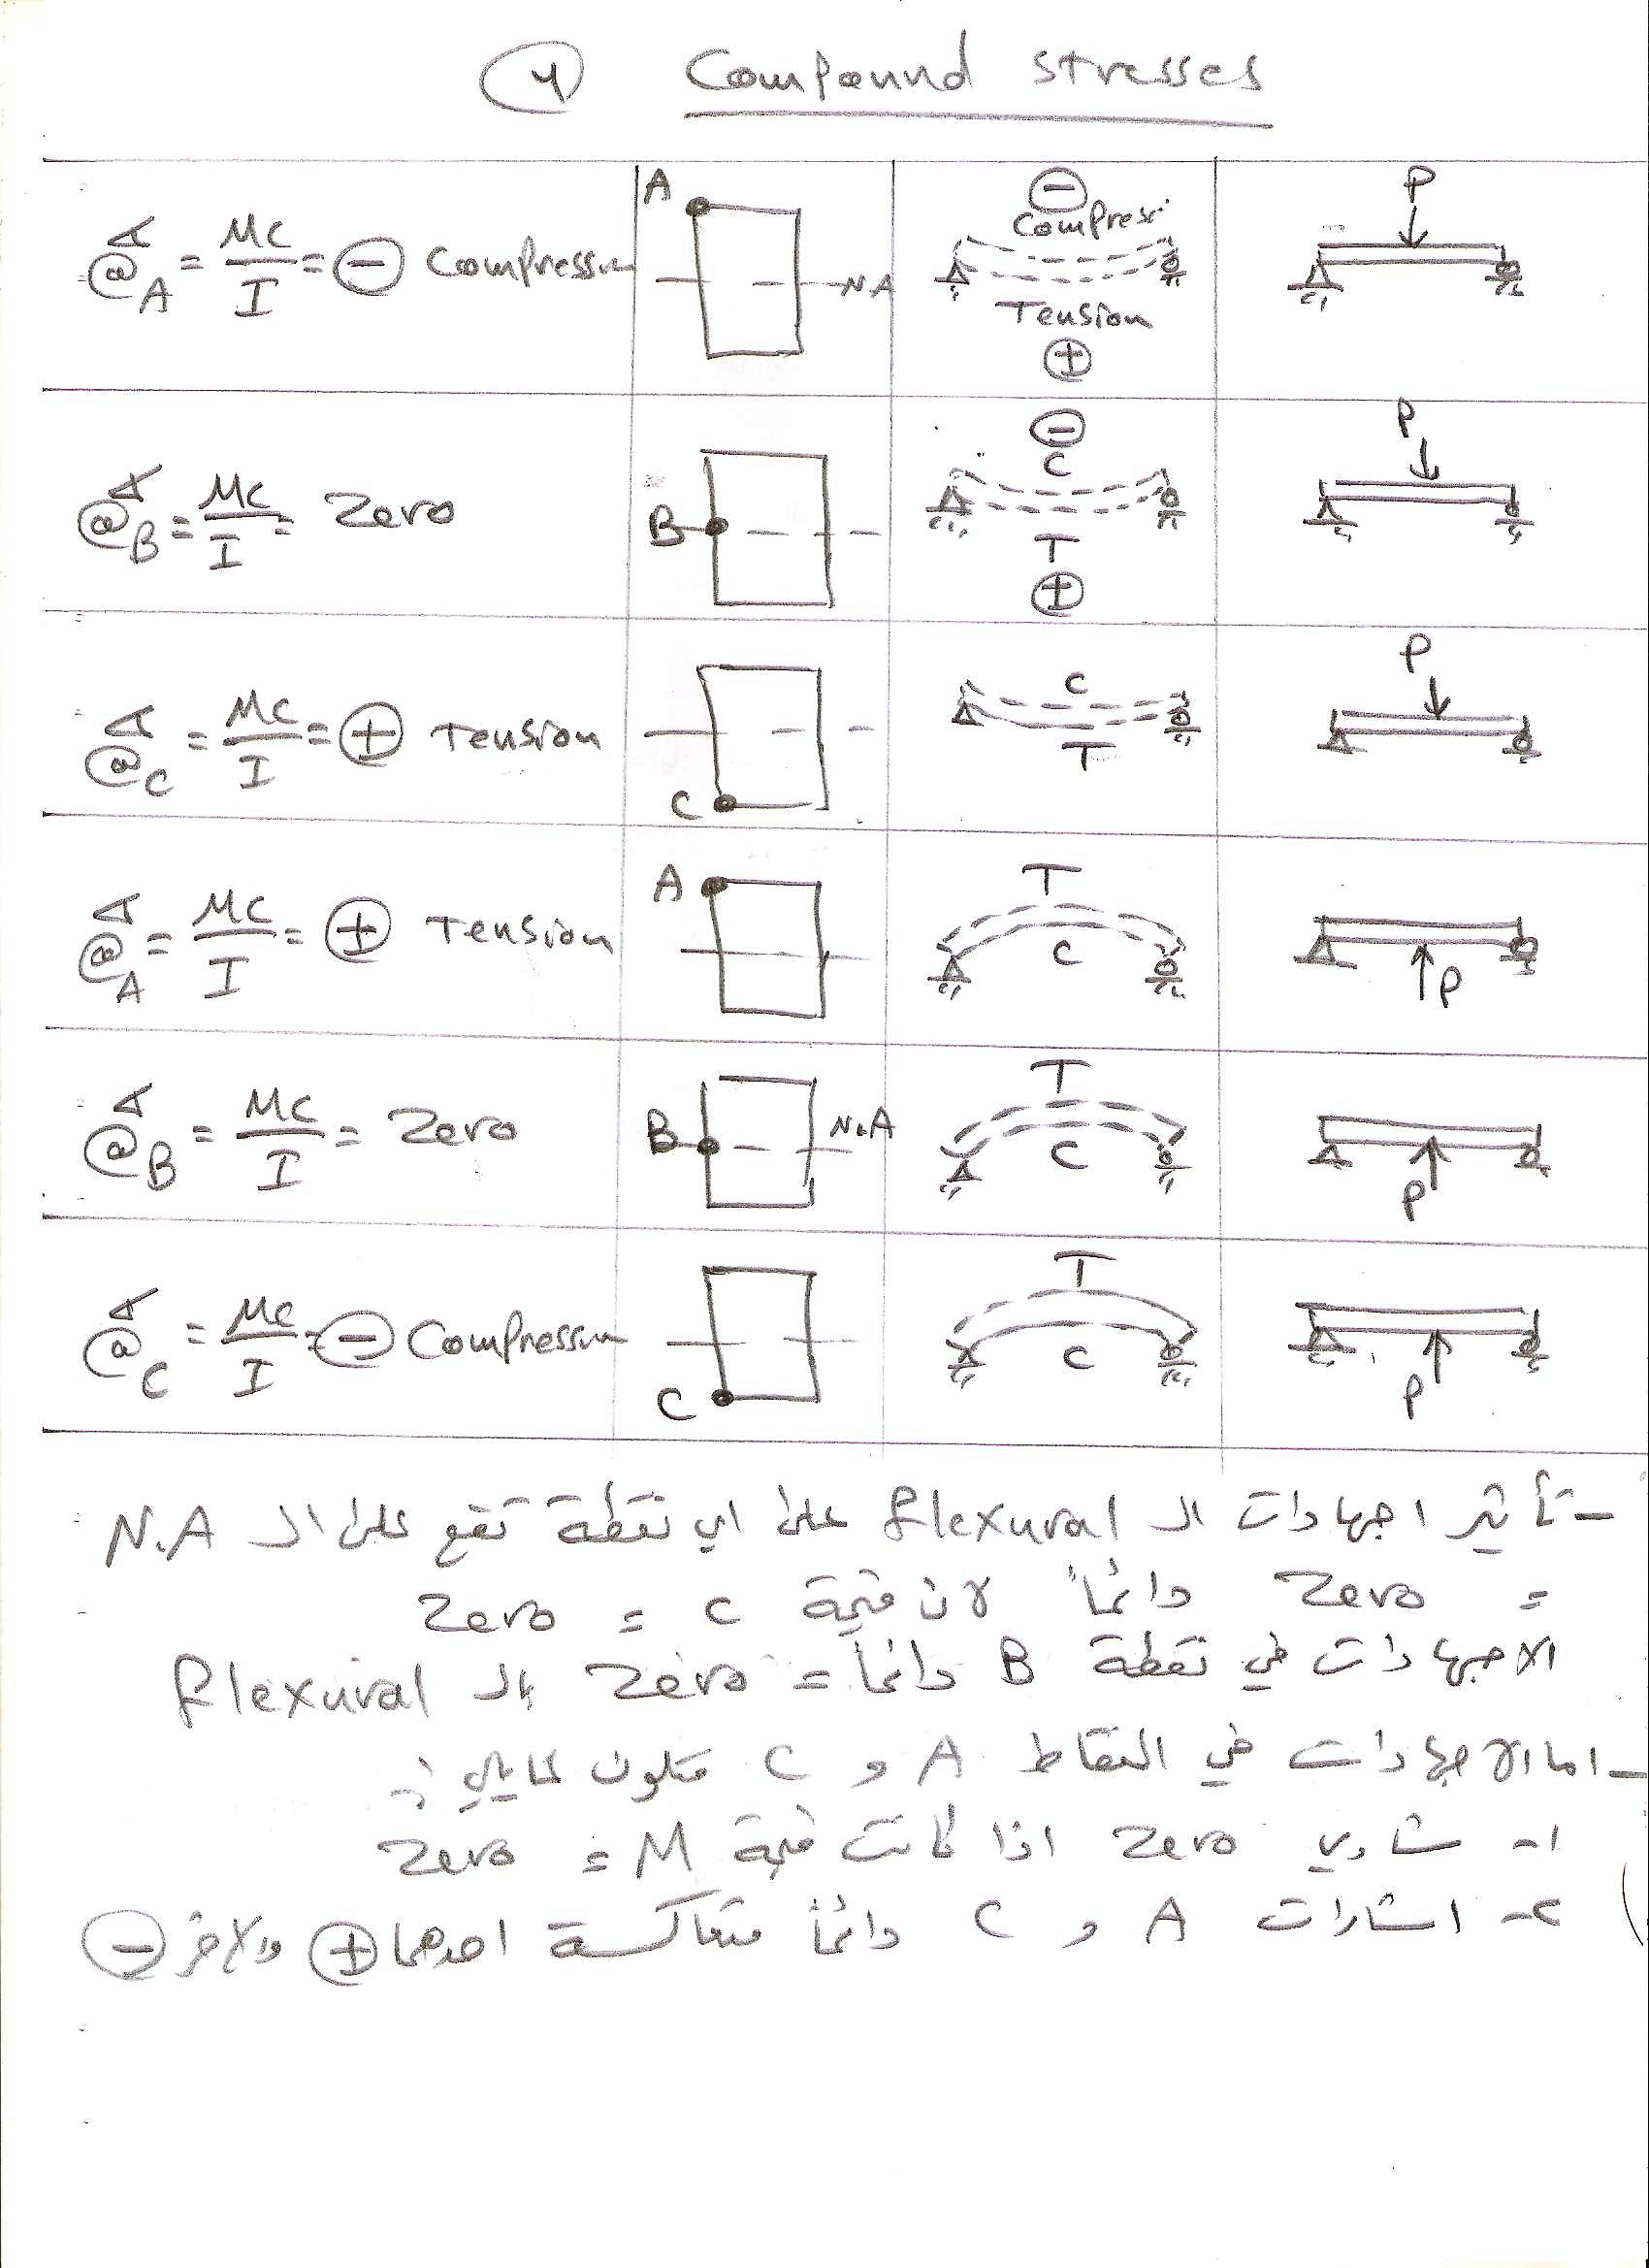 4 Compound stresses
σ@A = MC/I = ⊖ Compression
A
N.A
⊖
Compress
Tension
⊕
P
σ@B = MC/I = Zero
B
⊖
C
T
⊕
P
σ@C = MC/I = ⊕ Tension
C
C
T
P
σ@A = MC/I = ⊕ Tension
A
T
C
P
σ@B = MC/I = Zero
B
N.A
T
C
P
σ@C = MC/I = ⊖ Compression
C
T
C
P
- تأثير اجهادات ال flexural على اي نقطة تقع على ال N.A
= Zero دائماً لان قيمة C = Zero
الاجهادات في نقطة B دائماً = Zero بال flexural
- اما الاجهادات في النقاط A و C فتكون كمايلي :-
1- تساوي Zero اذا كانت قيمة M = Zero
2- اشارات A و C دائماً متعاكسة احدهما ⊕ والاخر ⊖